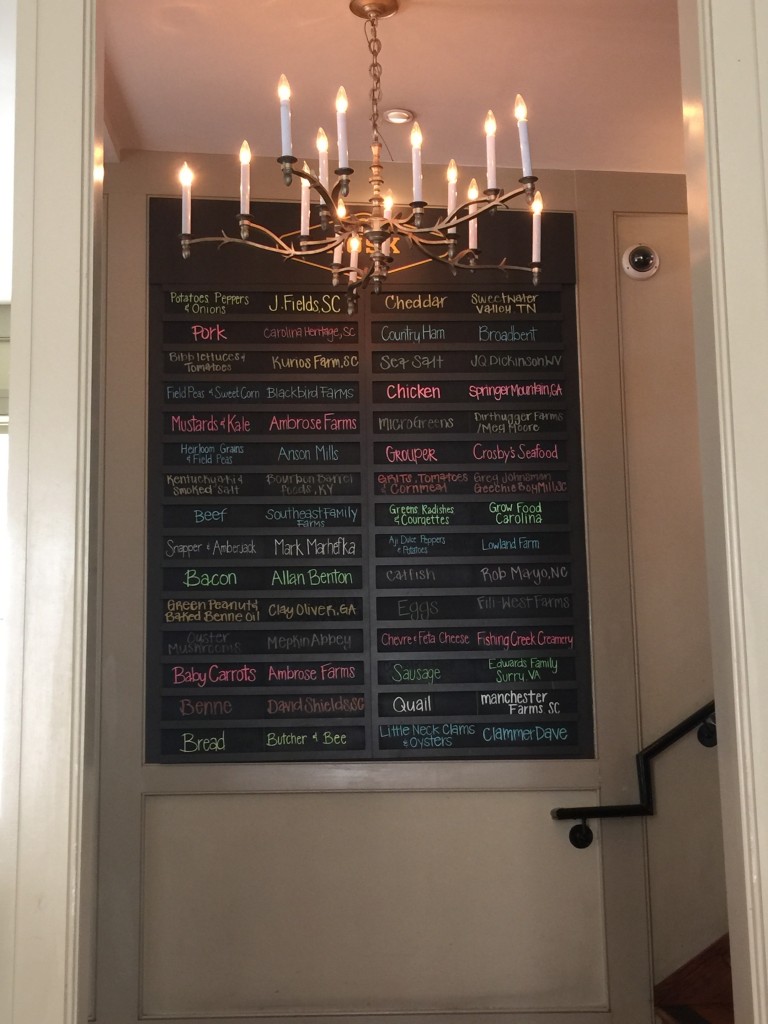 Potatoes Peppers & Onions J. Fields, SC
Pork Carolina Heritage, SC
Bibb lettuces & Tomatoes Kurios Farm, SC
Field Peas & Sweet Corn Blackbird Farms
Mustards & Kale Ambrose Farms
Heirloom Grains & Field Peas Anson Mills
Smoked Salt Bourbon Barrel Foods, KY
Beef Southeast Family Farms
Snapper & Amberjack Mark Marhefka
Bacon Allan Benton
Green Peanut & Baked Benne oil Clay Oliver, GA
Oyster Mushrooms Mepkin Abbey
Baby Carrots Ambrose Farms
Benne David Shields, SC
Bread Butcher & Bee
Cheddar Sweetwater Valley TN
Country Ham Broadbent
Sea Salt JQ Dickinson WV
Chicken Springer Mountain, GA
microGreens Dirthugger Farms / Meg Moore
Grouper Crosby's Seafood
GRITS, Tomatoes & Cornmeal Greg Johnsman Geechie Boy Mill SC
Greens Radishes & Courgettes Grow Food Carolina
Aji Dulce Peppers & Potatoes Lowland Farm
Catfish Rob Mayo, NC
Eggs Fili-West Farms
Chevre & Feta Cheese Fishing Creek Creamery
Sausage Edwards Family Surry VA
Quail manchester Farms SC
Little Neck Clams & Oysters Clammer Dave